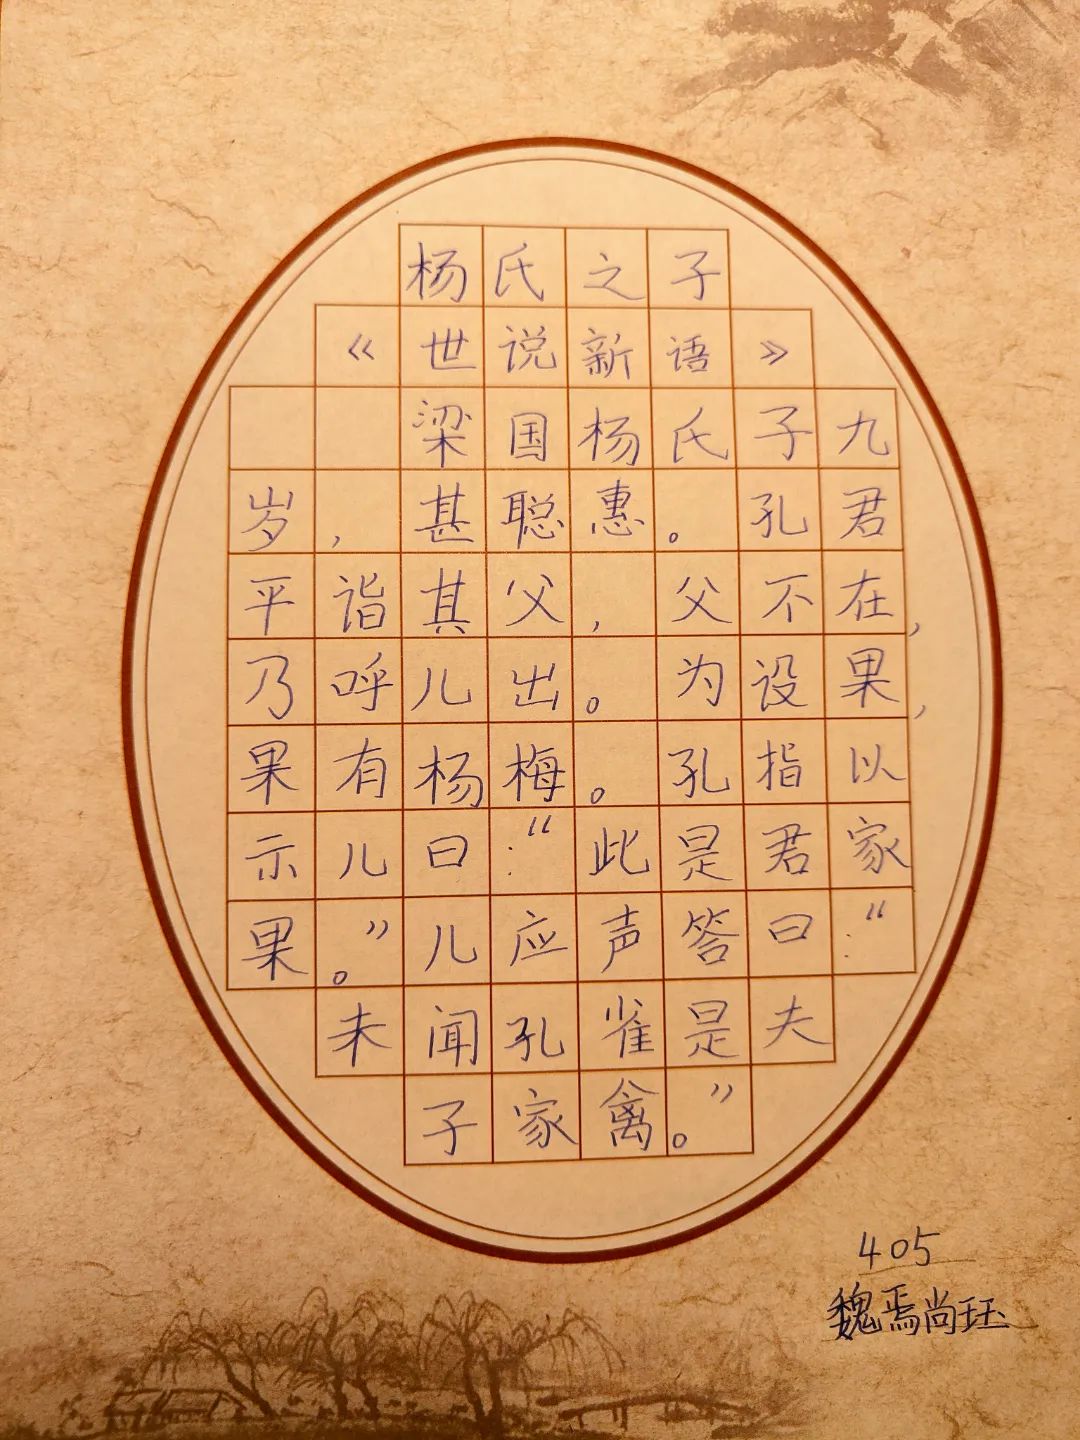 杨氏之子
《世说新语》
梁国杨氏子九
岁，甚聪惠。孔君
平诣其父，父不在，
乃呼儿出。为设果，
果有杨梅。孔指以
示儿曰：“此是君家
果。”儿应声答曰：“
未闻孔雀是夫
子家禽。”
405
魏焉尚珏